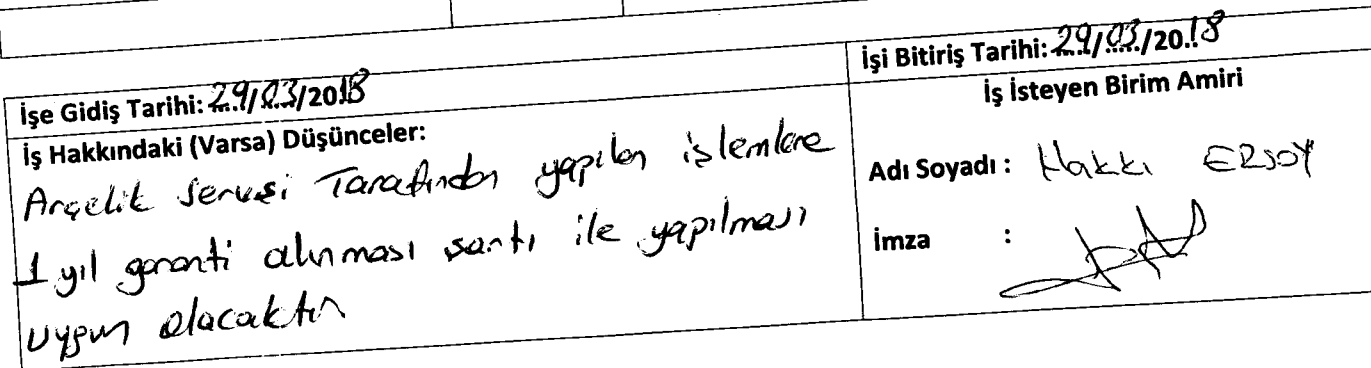 İşe Gidiş Tarihi: 29/03/2018
İş Hakkındaki (Varsa) Düşünceler:
Arçelik servisi Tarafından yapılan işlemlere
1 yıl garanti alınması şartı ile yapılması
uygun olacaktır
İşi Bitiriş Tarihi: 29/03/2018
İş İsteyen Birim Amiri
Adı Soyadı : Hakkı ERSOY
İmza :